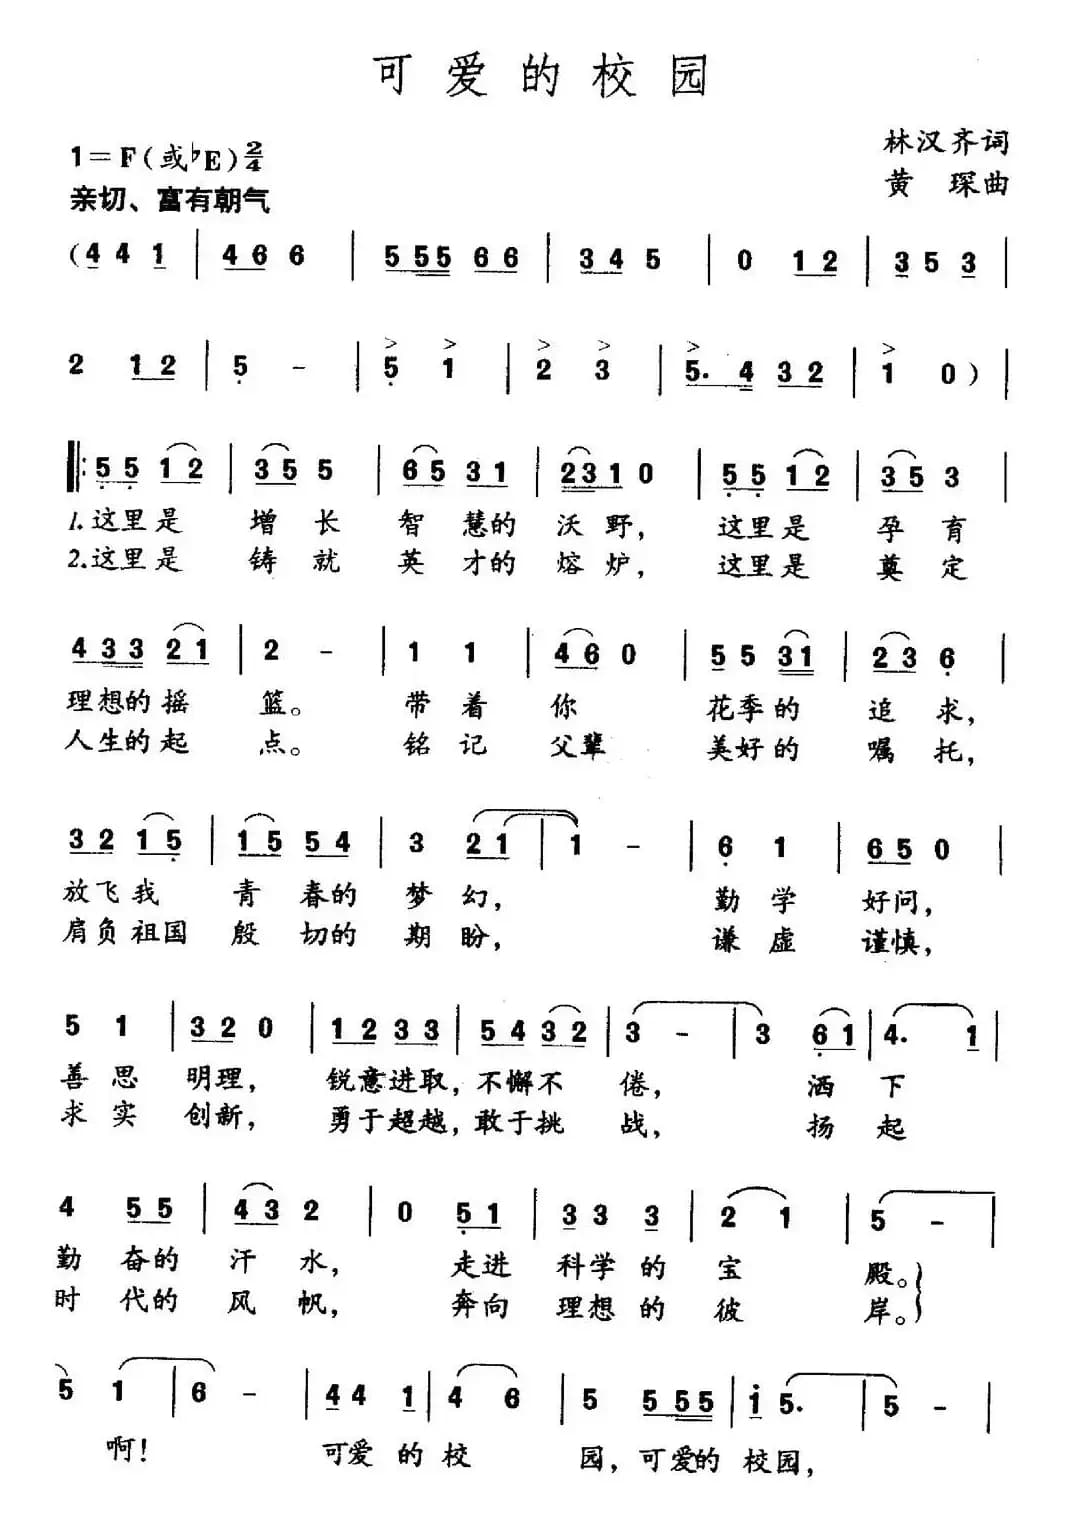 可爱的校园
林汉齐词
1=F(或♭E) 2/4
黄 琛曲
亲切、富有朝气
(4 4 1 | 4 6 6 | 5 5 5 6 6 | 3 4 5 | 0 1 2 | 3 5 3 |
2 1 2 | 5 - | 5 1 | 2 3 | 5. 4 3 2 | 1 0) |
5 5 1 2 | 3 5 5 | 6 5 3 1 | 2 3 1 0 | 5 5 1 2 | 3 5 3 |
1.这里是 增 长 智 慧的 沃 野, 这里是 孕 育
2.这里是 铸 就 英 才的 熔 炉, 这里是 奠 定
4 3 3 2 1 | 2 - | 1 1 | 4 6 0 | 5 5 3 1 | 2 3 6 |
理想的摇 篮。 带 着 你 花季的 追 求,
人生的起 点。 铭 记 父辈 美好的 嘱 托,
3 2 1 5 | 1 5 5 4 | 3 2 1 | 1 - | 6 1 | 6 5 0 |
放飞我 青 春的 梦 幻, 勤 学 好问,
肩负祖国 殷 切的 期 盼, 谦 虚 谨慎,
5 1 | 3 2 0 | 1 2 3 3 | 5 4 3 2 | 3 - | 3 6 1 | 4. 1 |
善 思 明理, 锐意进取, 不懈不 倦, 洒 下
求 实 创新, 勇于超越, 敢于挑 战, 扬 起
4 5 5 | 4 3 2 | 0 5 1 | 3 3 3 | 2 1 | 5 - |
勤 奋的 汗 水, 走进 科学的 宝 殿。
时 代的 风 帆, 奔向 理想的 彼 岸。
5 1 | 6 - | 4 4 1 | 4 6 | 5 5 5 5 | 1 5. | 5 - |
啊! 可爱 的 校 园, 可爱的 校园,